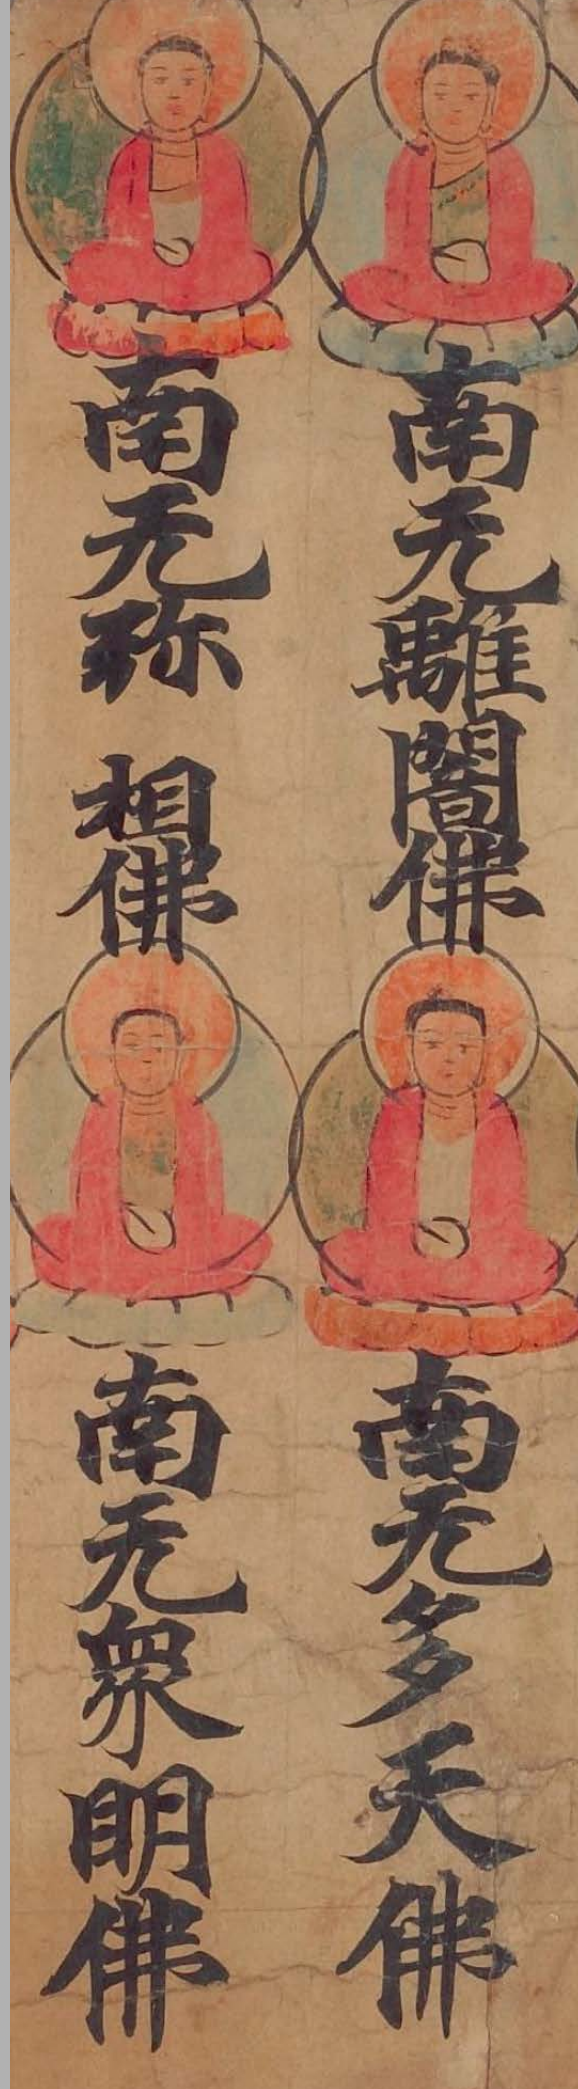 南无離闇佛
南无多天佛
南无弥相佛
南无衆明佛